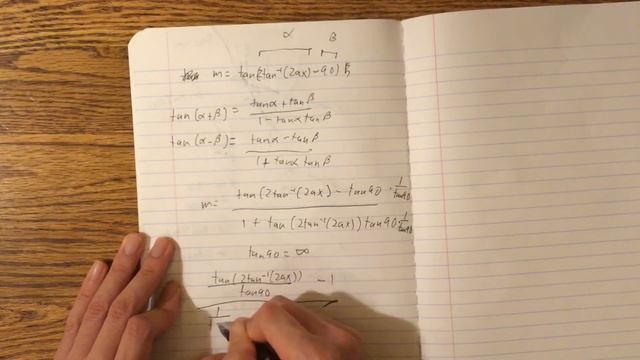 α β
m = tan(2tan⁻¹(2ax) - 90)
tan(α+β) = (tanα + tanβ)/(1 - tanα tanβ)
tan(α-β) = (tanα - tanβ)/(1 + tanα tanβ)
m = (tan(2tan⁻¹(2ax) - tan90 · 1/tan90)/(1 + tan(2tan⁻¹(2ax))tan90 · 1/tan90)
tan90 = ∞
tan(2tan⁻¹(2ax))/tan90 - 1
1